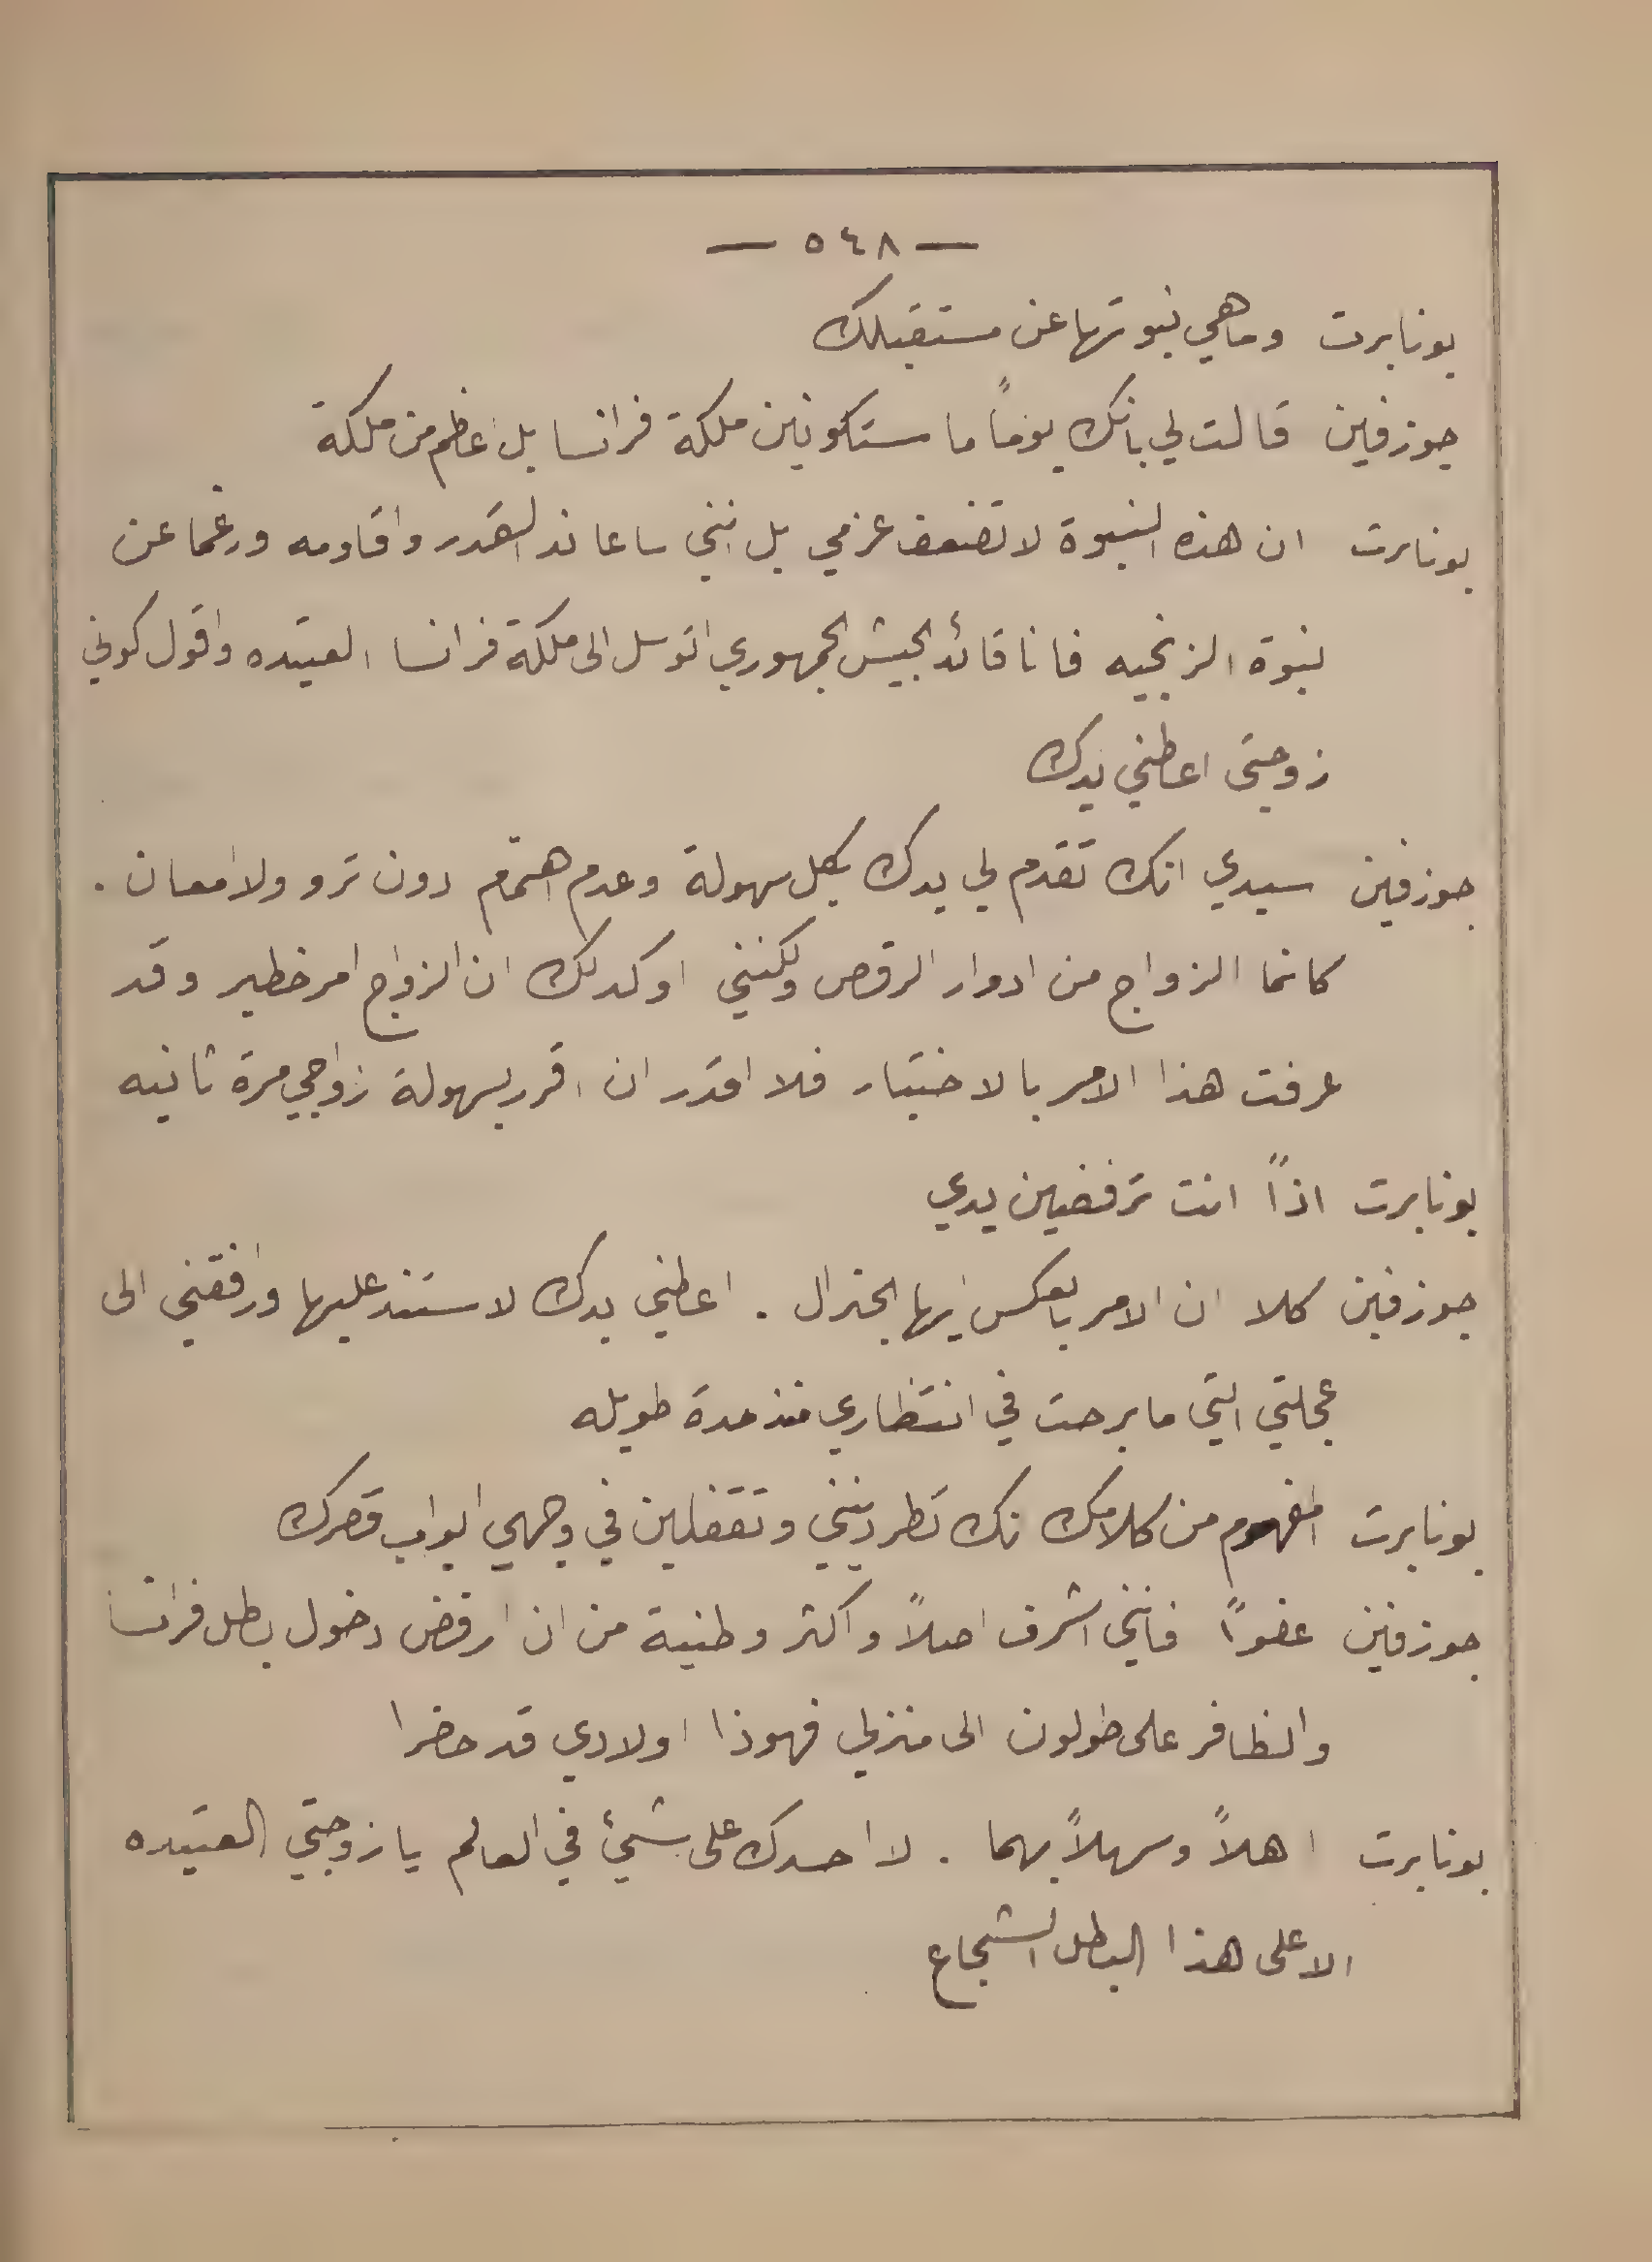 — ٥٤٨ —
بونابرت وما هي نبوتها عن مستقبلك
جوزفين قالت لي بانك يوماً ما ستكونين ملكة فرانسا بل اعظم من ملكة
بونابرت ان هذه النبوة لا تضعف عزمي بل انني ساعاند القدر واقاومه ورغما عن
نبوة الزنجيه فانا قائد الجيش الجمهوري اتوسل الى ملكة فرانسا العتيده واقول كوني
زوجتى اعطني يدك
جوزفين سيدي انك تقدم لي يدك بكل سهولة وعدم اهتمام دون ترو ولا امعان .
كانما الزواج من ادوار الرقص ولكنني اوكد لك ان الزواج امر خطير وقد
عرفت هذا الامر بالاختبار فلا اقدر ان اقرر بسهولة زواجي مرة ثانيه
بونابرت اذاً انت ترفضين يدي
جوزفين كلا ان الامر بالعكس ايها الجنرال . اعطني يدك لاستند عليها ورافقني الى
عجلتي التي ما برحت في انتظاري منذ مدة طويله
بونابرت المفهوم من كلامك انك تطردينني وتقفلين في وجهي ابواب قصرك
جوزفين عفواً فانني اشرف اصلاً واكثر وطنية من ان ارفض دخول بطل فرانسا
والظافر على طولون الى منزلي فهوذا اولادي قد حضرا
بونابرت اهلاً وسهلاً بهما . لا احسدك على شيئ في العالم يا زوجتي العتيده
الا على هذا البطل الشجاع